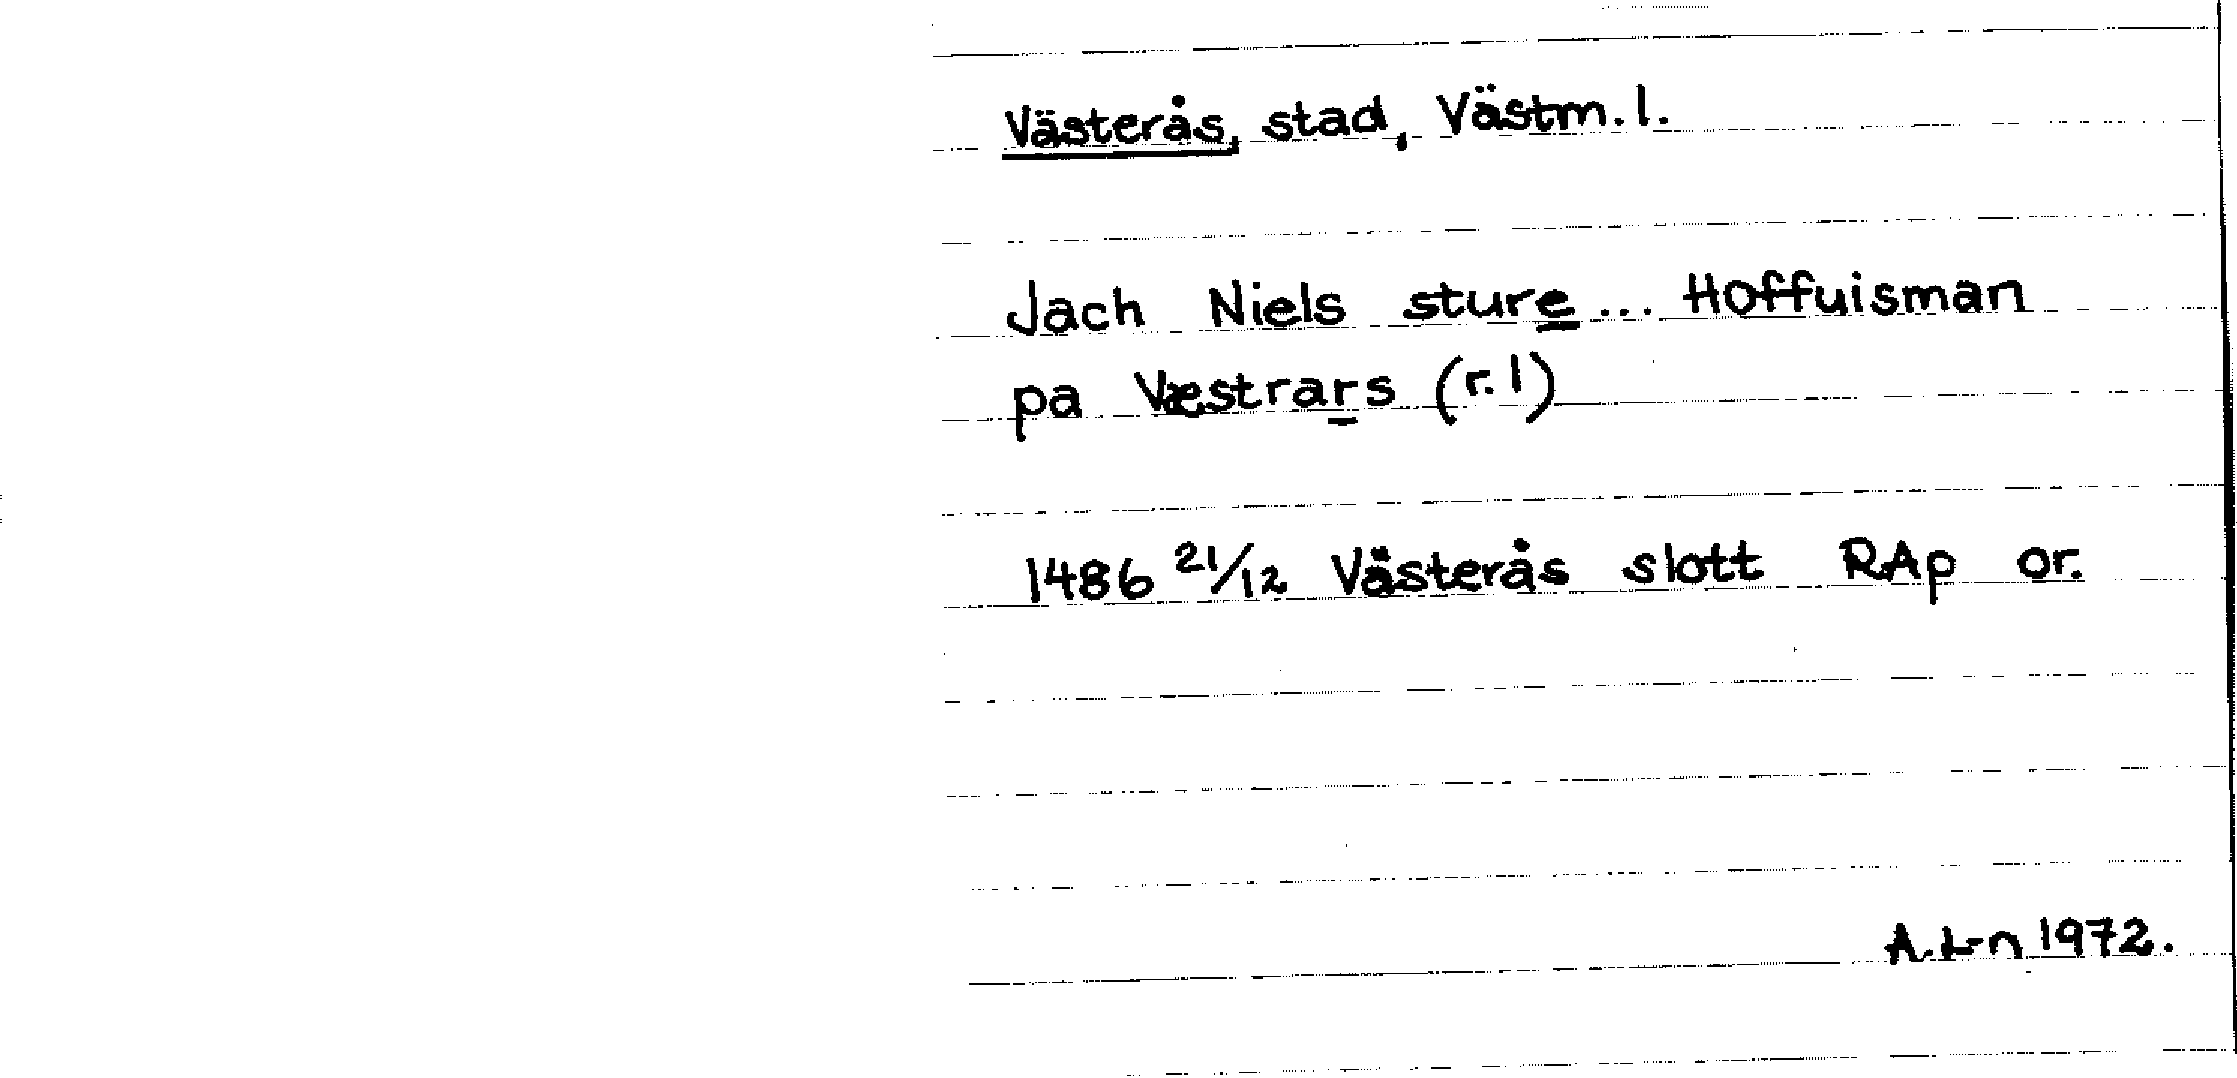 Västerås, stad, Västm. l.
Jach Niels sture ... Hoffuisman
pa Væstrars (r. 1)
1486 21/12 Västerås slott RAp or.
A. L-n 1972.